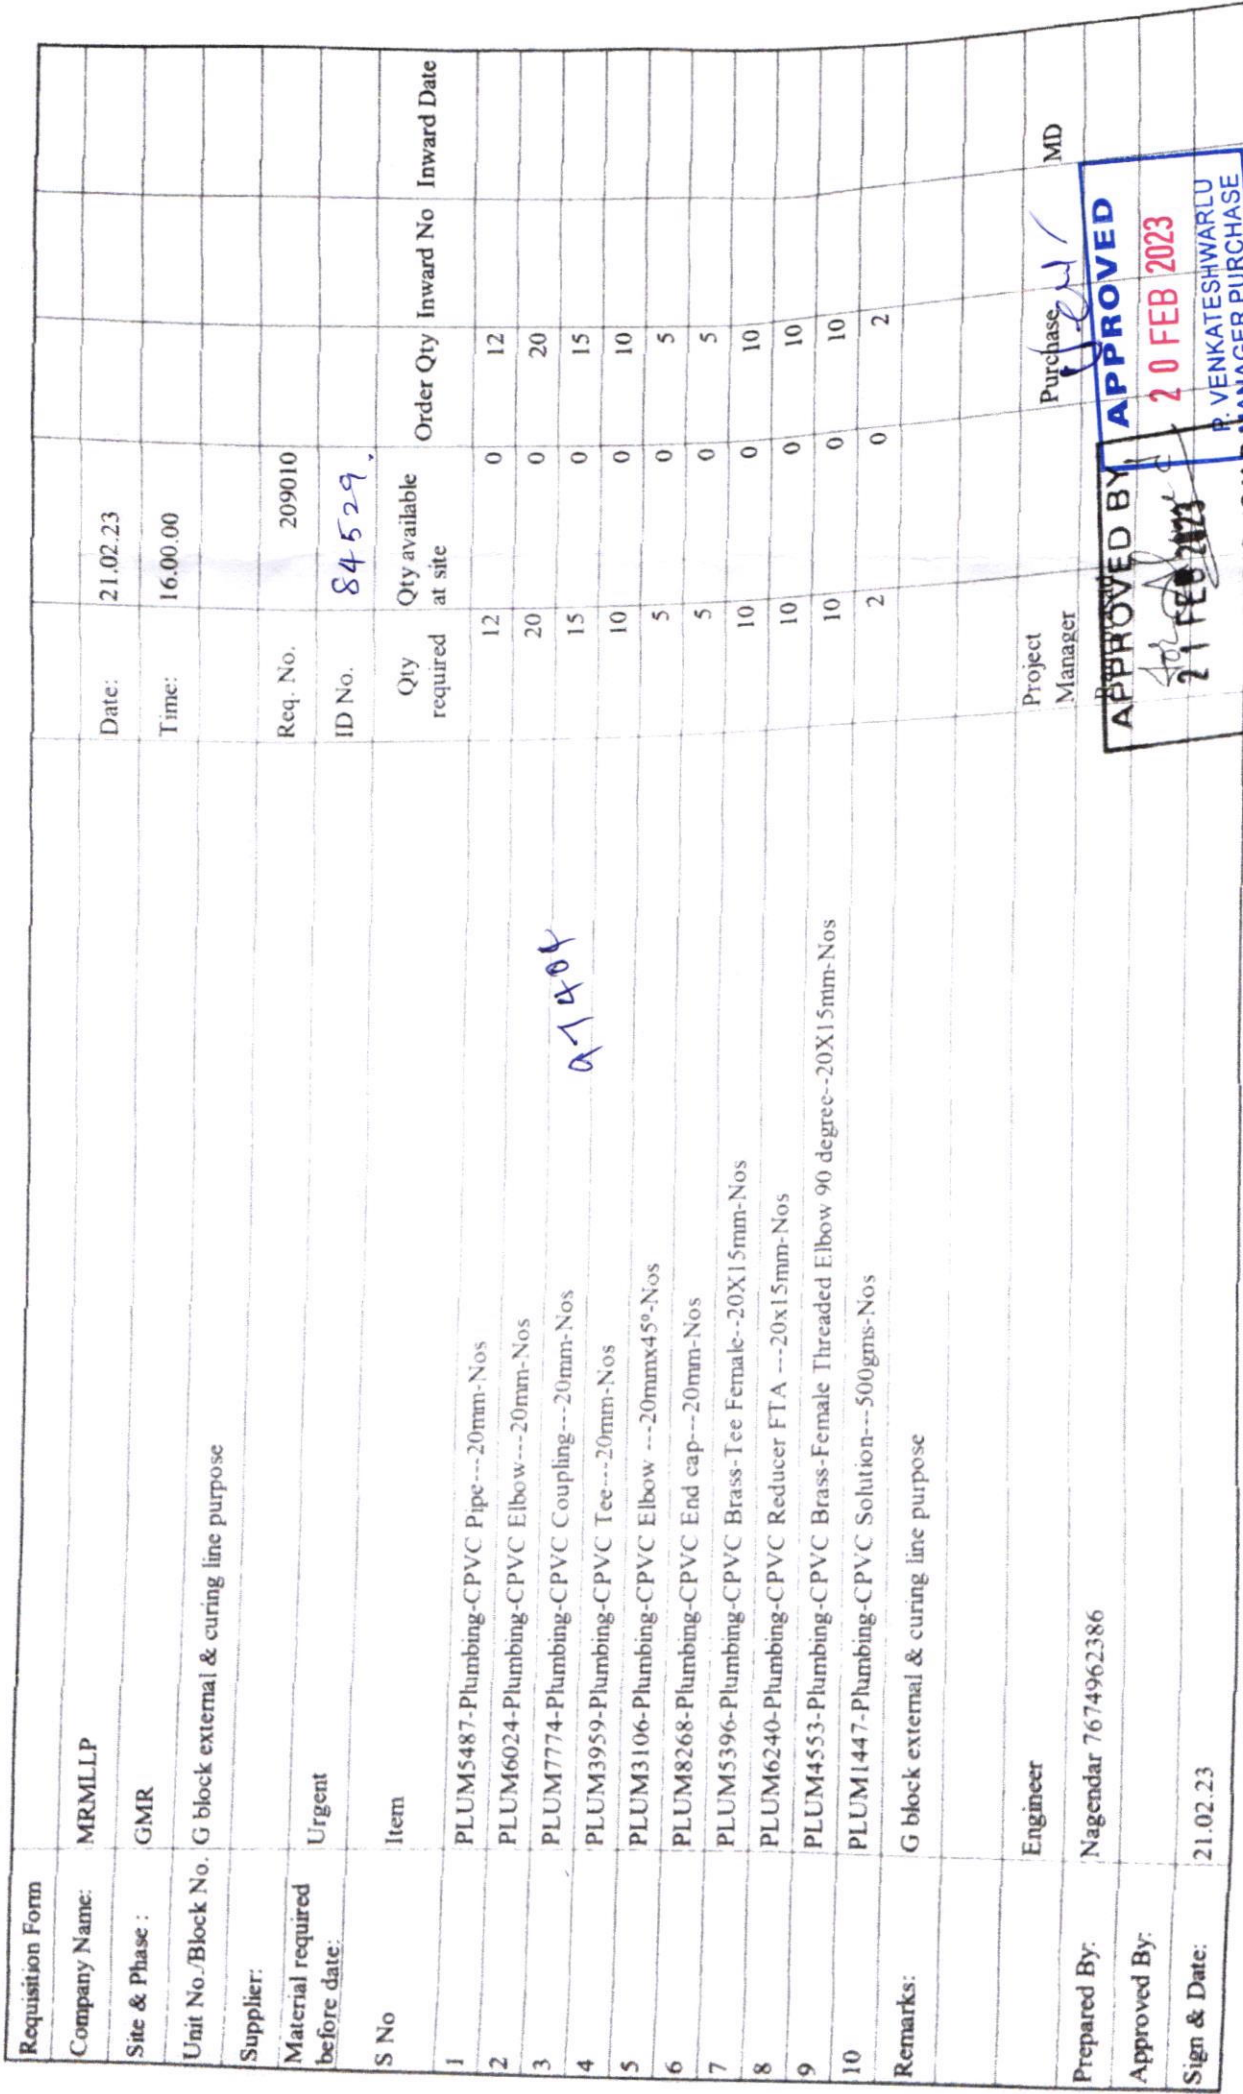 Requisition Form
Company Name: MRMLLP Date: 21.02.23
Site & Phase : GMR Time: 16.00.00
Unit No./Block No. G block external & curing line purpose
Supplier: Req. No. 209010
Material required before date: Urgent ID No. 84529.
S No Item Qty required Qty available at site Order Qty Inward No Inward Date
1 PLUM5487-Plumbing-CPVC Pipe---20mm-Nos 12 0 12
2 PLUM6024-Plumbing-CPVC Elbow---20mm-Nos 20 0 20
3 PLUM7774-Plumbing-CPVC Coupling---20mm-Nos 15 0 15
4 PLUM3959-Plumbing-CPVC Tee---20mm-Nos 10 0 10
5 PLUM3106-Plumbing-CPVC Elbow ---20mmx45°-Nos 5 0 5
6 PLUM8268-Plumbing-CPVC End cap---20mm-Nos 5 0 5
7 PLUM5396-Plumbing-CPVC Brass-Tee Female--20X15mm-Nos 10 0 10
8 PLUM6240-Plumbing-CPVC Reducer FTA ---20x15mm-Nos 10 0 10
9 PLUM4553-Plumbing-CPVC Brass-Female Threaded Elbow 90 degree--20X15mm-Nos 10 0 10
10 PLUM1447-Plumbing-CPVC Solution---500gms-Nos 2 0 2
Remarks: G block external & curing line purpose
Engineer Project Manager Purchase MD
Prepared By: Nagendar 7674962386
APPROVED BY
21 FEB 2023
APPROVED
20 FEB 2023
P. VENKATESHWARLU
MANAGER PURCHASE
Approved By:
Sign & Date: 21.02.23